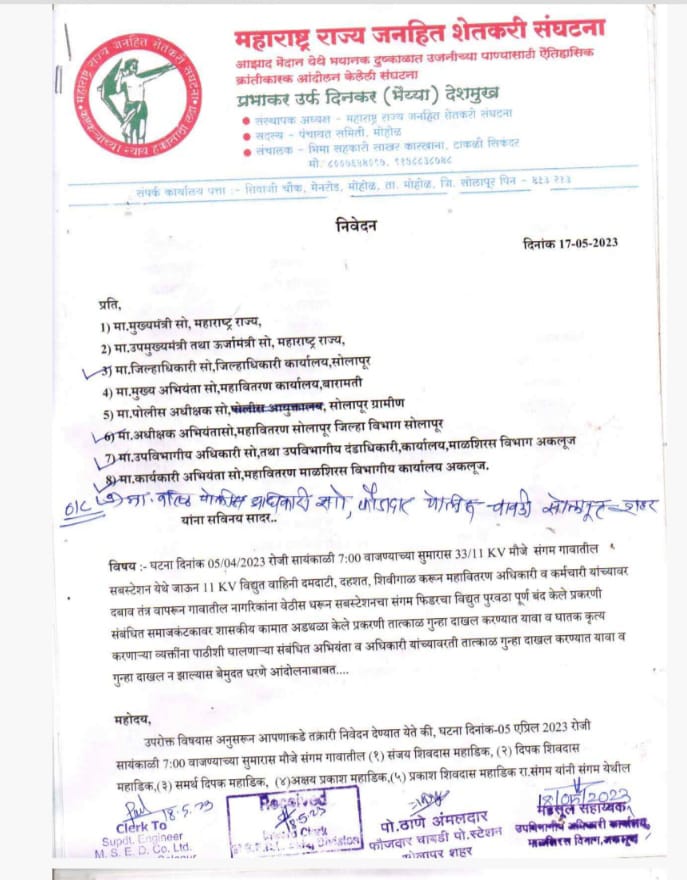 महाराष्ट्र राज्य जनहित शेतकरी संघटना
आझाद मैदान येथे भयानक दुष्काळात उजनीच्या पाण्यासाठी ऐतिहासिक
क्रांतीकारक आंदोलन केलेली संघटना
प्रभाकर उर्फ दिनकर (भैय्या) देशमुख
संस्थापक अध्यक्ष - महाराष्ट्र राज्य जनहित शेतकरी संघटना
सदस्य - पंचायत समिती, मोहोळ
संचालक - भिमा सहकारी साखर कारखाना, टाकळी सिकंदर
संपर्क कार्यालय पत्ता :- शिवाजी चौक, मेनरोड, मोहोळ, ता. मोहोळ, जि. सोलापूर पिन - ४१३ २१३
निवेदन
दिनांक 17-05-2023
प्रति,
1) मा.मुख्यमंत्री सो, महाराष्ट्र राज्य,
2) मा.उपमुख्यमंत्री तथा ऊर्जामंत्री सो, महाराष्ट्र राज्य,
3) मा.जिल्हाधिकारी सो,जिल्हाधिकारी कार्यालय,सोलापूर
4) मा.मुख्य अभियंता सो,महावितरण कार्यालय,बारामती
5) मा.पोलीस अधीक्षक सो,पोलीस आयुक्तालय, सोलापूर ग्रामीण
6) मा.अधीक्षक अभियंतासो,महावितरण सोलापूर जिल्हा विभाग सोलापूर
7) मा.उपविभागीय अधिकारी सो,तथा उपविभागीय दंडाधिकारी,कार्यालय,माळशिरस विभाग अकलूज
8) मा.कार्यकारी अभियंता सो,महावितरण माळशिरस विभागीय कार्यालय अकलूज.
O/C 9) मा. वरिष्ठ पोलीस अधिकारी सो, फौजदार चावडी सोलापूर शहर
यांना सविनय सादर..
विषय :- घटना दिनांक 05/04/2023 रोजी सायंकाळी 7:00 वाजण्याच्या सुमारास 33/11 KV मौजे संगम गावातील
सबस्टेशन येथे जाऊन 11 KV विद्युत वाहिनी दमदाटी, दहशत, शिवीगाळ करून महावितरण अधिकारी व कर्मचारी यांच्यावर
दबाव तंत्र वापरून गावातील नागरिकांना वेठीस धरून सबस्टेशनचा संगम फिडरचा विद्युत पुरवठा पूर्ण बंद केले प्रकरणी
संबंधित समाजकंटकावर शासकीय कामात अडथळा केले प्रकरणी तात्काळ गुन्हा दाखल करण्यात यावा व घातक कृत्य
करणाऱ्या व्यक्तींना पाठीशी घालणाऱ्या संबंधित अभियंता व अधिकारी यांच्यावरती तात्काळ गुन्हा दाखल करण्यात यावा व
गुन्हा दाखल न झाल्यास बेमुदत धरणे आंदोलनाबाबत....
महोदय,
उपरोक्त विषयास अनुसरून आपणाकडे तक्रारी निवेदन देण्यात येते की, घटना दिनांक-05 एप्रिल 2023 रोजी
सायंकाळी 7:00 वाजण्याच्या सुमारास मौजे संगम गावातील (१) संजय शिवदास महाडिक, (२) दिपक शिवदास
महाडिक,(३) समर्थ दिपक महाडिक, (४)अक्षय प्रकाश महाडिक,(५) प्रकाश शिवदास महाडिक रा.संगम यांनी संगम येथील
18.5.23
Clerk To
Supdt. Engineer
M. S. E. D. Co. Ltd.
Received
18.5.23
पो.ठाणे अंमलदार
फौजदार चावडी पो.स्टेशन
सोलापूर शहर
18/05/2023
महसूल सहाय्यक
उपविभागीय अधिकारी कार्यालय,
माळशिरस विभाग,अकलूज